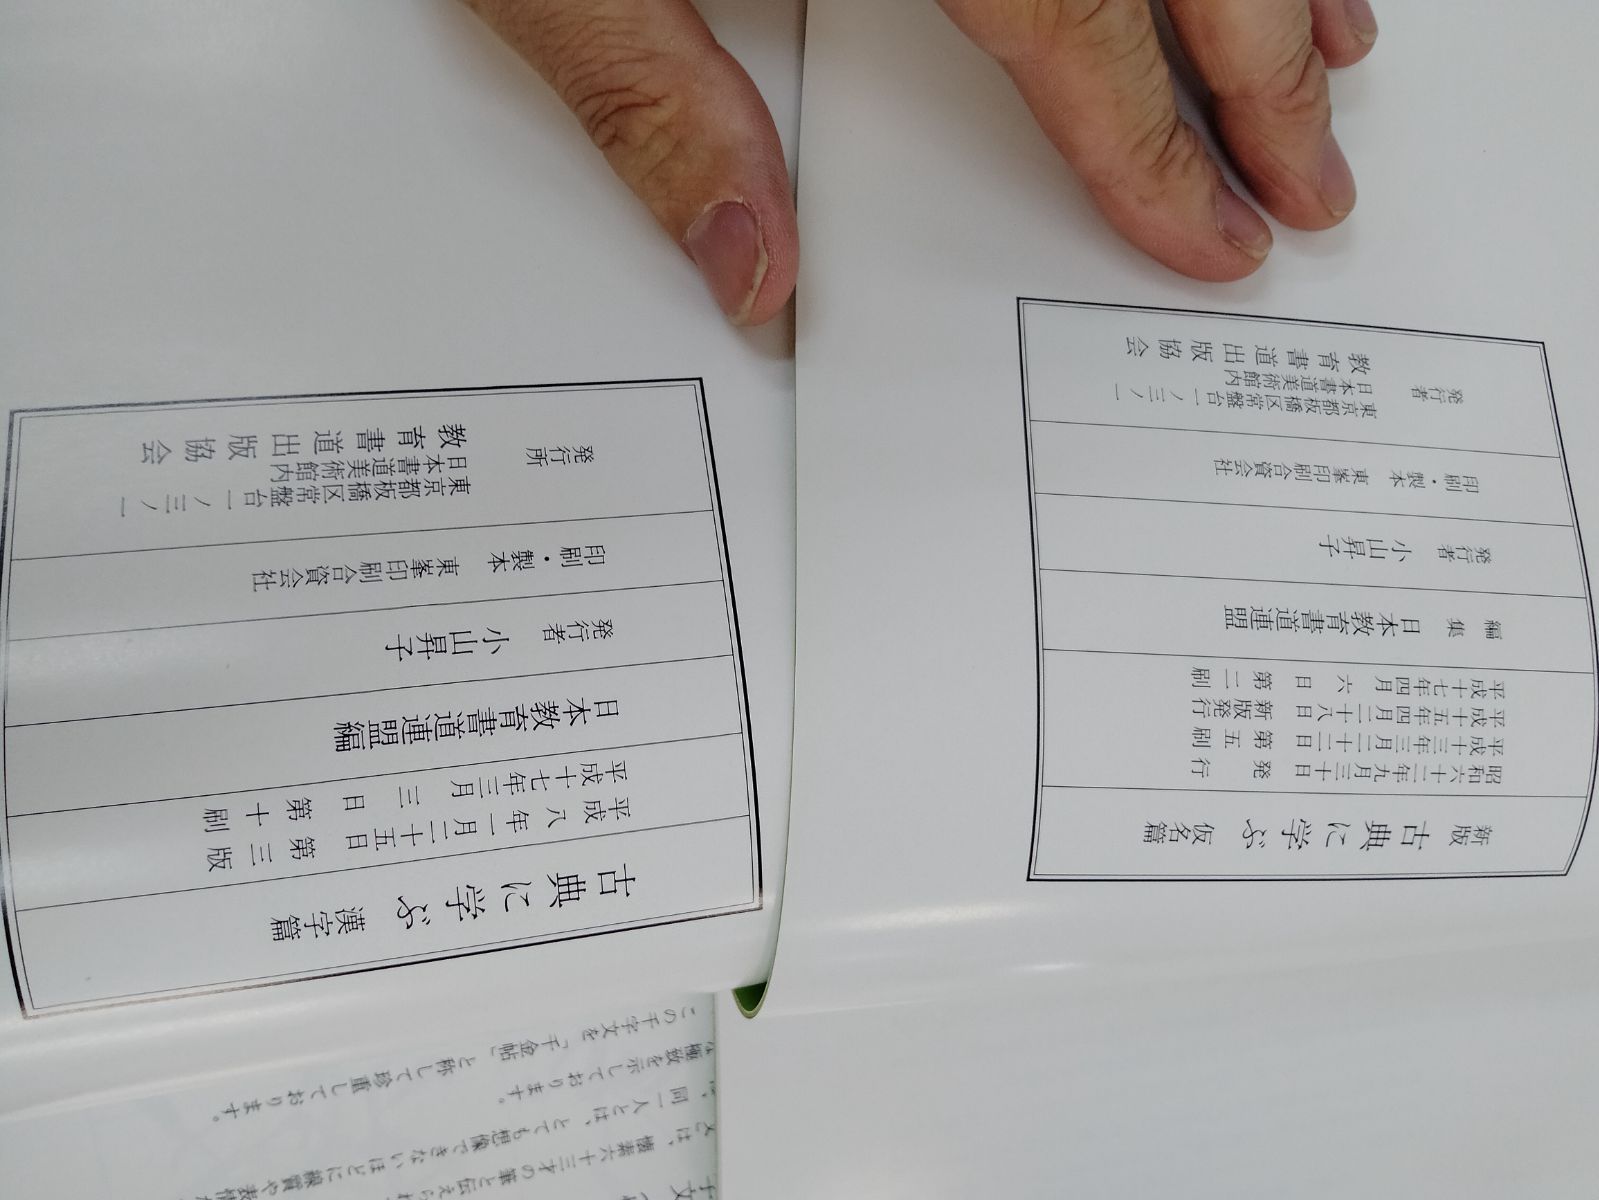 古典に学ぶ 漢字篇
平成八年一月二十五日 第三版
平成十七年三月三日 第十刷
日本教育書道連盟編
発行者 小山昇子
印刷・製本 東峯印刷合資会社
発行所
東京都板橋区常盤台一ノ三ノ一
日本書道美術館内
教育書道出版協会
新版 古典に学ぶ 仮名篇
昭和六十二年九月三十日 発行
平成十三年三月二十二日 第五刷
平成十五年四月二十八日 新版発行
平成十七年四月六日 第二刷
編集 日本教育書道連盟
発行者 小山昇子
印刷・製本 東峯印刷合資会社
発行者
東京都板橋区常盤台一ノ三ノ一
日本書道美術館内
教育書道出版協会
この千字文を「千金帖」と称して珍重しております。
極致を示しております。
同一人とは、とても想像できないほどに線質や表情
とは、懐素六十三才の筆と伝えられ